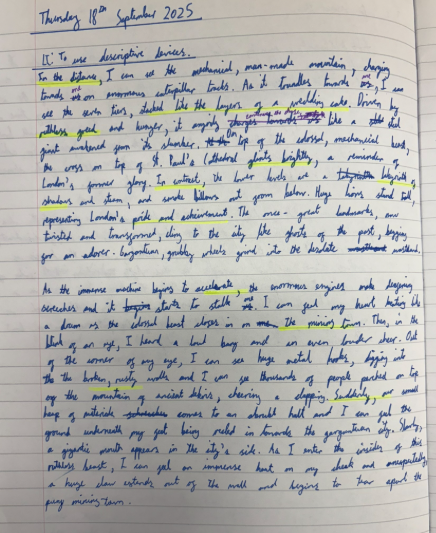 Thursday 18th September 2025
LI: To use descriptive devices.
In the distance, I can see the mechanical, man-made mountain, charging
towards me on enormous caterpillar tracks. As it travelles towards me, I can
see the seven tiers, stacked like the layers of a wedding cake. Driven by
ruthless greed and hunger, it angrily charges towards like a
giant awakened from its slumber. On top of the colossal, mechanical beast,
the cross on top of St. Paul's Cathedral glints brightly, a reminder of
London's former glory. In contrast, the lower levels are a labyrinth of
shadows and steam, and smoke billows out from below. Huge lions stand tall,
representing London's pride and achievement. The once-great landmarks, now
twisted and transformed, cling to the city like ghosts of the past, begging
for an adorer. gargantuan, grubby wheels grind into the desolate wasteland.
As the immense machine begins to accelerate, the enormous engines make deafening
screeches and it starts to stalk me. I can feel my heart beating like
a drum as the colossal beast closes in on the mining town. Then, in the
blink of an eye, I heard a loud bang and an even louder cheer. Out
of the corner of my eye, I can see huge metal hooks, digging into
the the broken, rusty walls and I can see thousands of people perched on top
of the mountain of ancient debris, cheering a clapping. Suddenly, our small
heap of materials comes to an abrubt halt and I can feel the
ground underneath my feet being reeled in towards the gargantuan city. Slowly,
a gigantic mouth appears in the city's side. As I enter the insides of this
ruthless beast, I can feel an immense heat on my cheek and unexpectedly,
a huge claw extends out of the wall and begins to tear apart the
puny mining town.